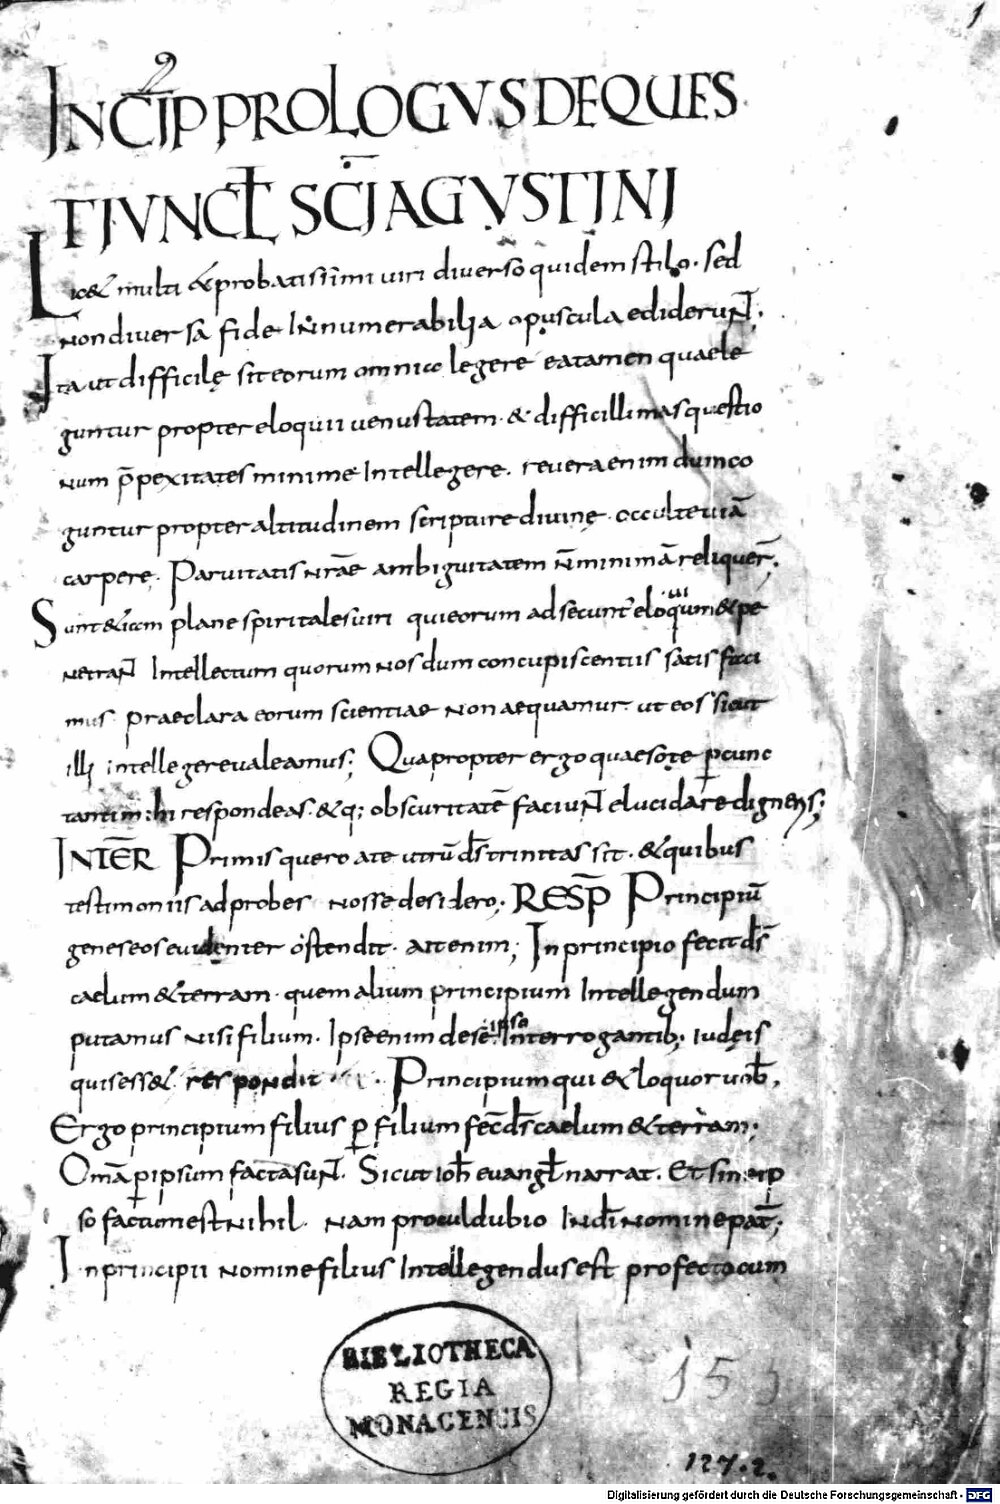 1
INCIP̄ PROLOGVS DE QUES
TIVNCL̄ SC̄I AGVSTINI
Lic& multi &probatissimi uiri diuerso quidem stilo. sed
non diuersa fide Innumerabilia opuscula ediderunt̄.
Ita ut difficilę sit eorum omnia legere ea tamen quae le
guntur propter eloquii uenustatem. & difficillimas questio
num p̄pexitates minime Intellegere. reuera enim dum co
guntur propter altitudinem scripture diuinę. occulte uiā
carpere. Paruitatis nrāe ambiguitatem n̄ minimā reliquer̄.
Sunt &iam plane spiritales uiri qui eorum adsecunt' eloquiūm &pe
netrant̄ Intellectum quorum nos dum concupiscentiis satis faci
mus praeclara eorum scientiae non aequamur. ut eos sicut
illi intellegere ualeamus; Quapropter ergo quaeso te ꝑcunc
tantim: hi respondeas. &q; obscuritatē faciunt̄ elucidare digneris;
INTĒR Primis quero a te utrū ds̄ trinitas sit. &quibus
testimoniis adprobes nosse desidero; RESP̄ Principiū
geneseos euidenter ostendit. ait enim; In principio fecit ds̄
caelum &terram. quem alium principium Intellegendum
putamus nisi filium. Ipse enim de se ipso Interrogantib; iudęis
quis ess&. respondit. Principium qui &loquor uob̄.
Ergo principium filius ꝑ filium fec̄ ds̄ caelum &terram.
Omā ꝑ ipsum facta sunt̄. Sicut ioh̄ euangl̄ narrat. Et sine ip
so factum est nihil. nam procul dubio In dī nomine pat̄.
In principii nomine filius Intellegendus est profecto cum
BIBLIOTHECA
REGIA
MONACENSIS
127.2.
Digitalisierung gefördert durch die Deutsche Forschungsgemeinschaft - DFG